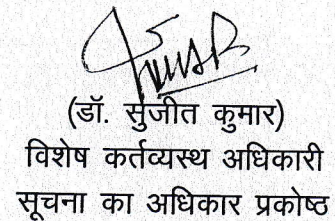 (डॉ. सुजीत कुमार)
विशेष कर्तव्यस्थ अधिकारी
सूचना का अधिकार प्रकोष्ठ